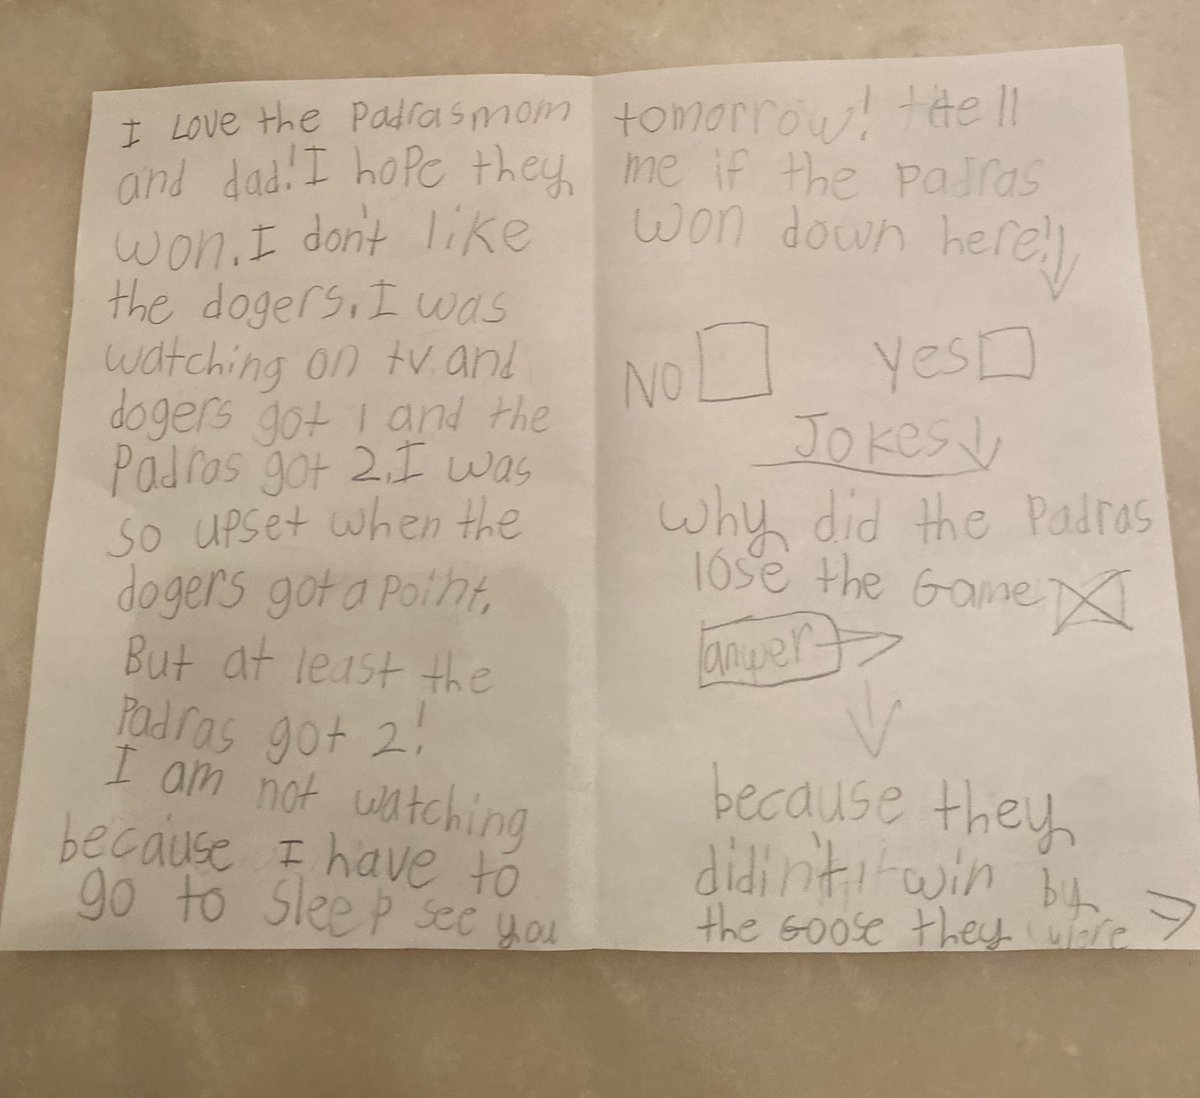 I LOVE the Padras mom
and dad! I hope they
won. I don't like
the dogers. I was
watching on tv and
dogers got 1 and the
Padras got 2. I was
so upset when the
dogers got a point.
But at least the
Padras got 2!
I am not watching
because I have to
go to sleep see you
tomorrow! tell
me if the padras
won down here!
NO
yes
Jokes
why did the Padras
lose the Game
anwer
because they
didin't win by
the Goose they were